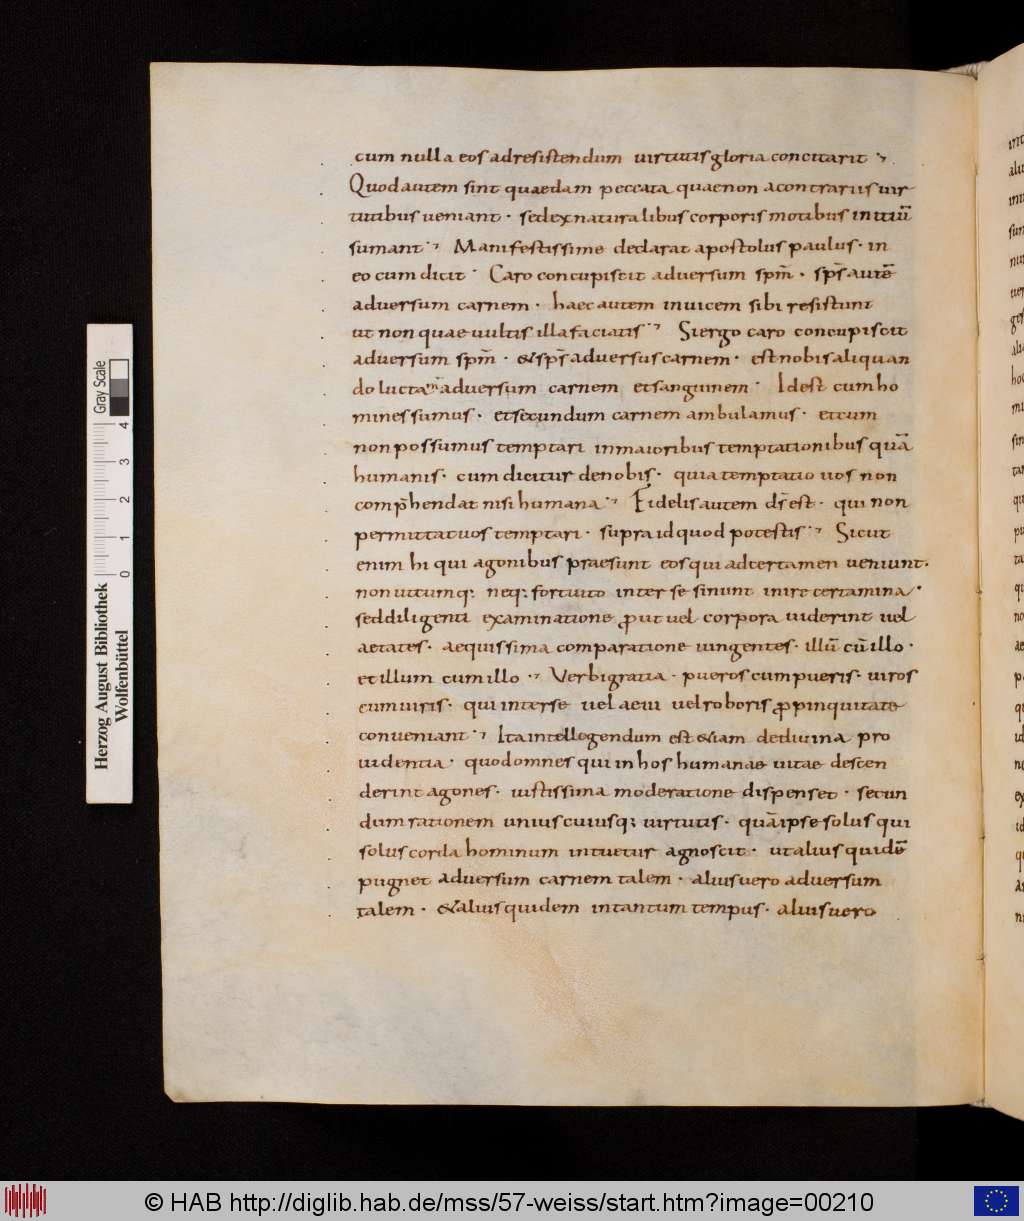 cum nulla eos ad resistendum uirtutis gloria concitarit ·
Quod autem sint quaedam peccata quae non a contrariis uir
tutibus ueniant · sed ex naturalibus corporis motibus initiū
sumant · Manifestissime declarat apostolus paulus · in
eo cum dicit · Caro concupiscit aduersum sp̄m · sp̄s autē
aduersum carnem · haec autem inuicem sibi resistunt
ut non quae uultis illa faciatis · Si ergo caro concupiscit
aduersum sp̄m · & sp̄s aduersus carnem · est nobis aliquan
do luctam̄ aduersum carnem et sanguinem · Id est cum ho
mines sumus · et secundum carnem ambulamus · et cum
non possumus temptari in maioribus temptationibus quā
humanis · cum dicitur de nobis · quia temptatio uos non
comp̄hendat nisi humana · Fidelis autem d̄s est · qui non
permittat uos temptari · supra id quod potestis · Sicut
enim hi qui agonibus praesunt eos qui ad certamen ueniunt ·
non utcumq; neq; fortuito inter se sinunt inire certamina ·
sed diligenti examinatione ꝓut uel corpora uiderint uel
aetates · aequissima comparatione iungentes · illū cū illo ·
et illum cum illo · Verbi gratia · pueros cum pueris · uiros
cum uiris · qui inter se uel aeui uel roboris ꝓpinquitate
conueniant · Ita intellegendum est &iam de diuina pro
uidentia · quod omnes qui in hos humanae uitae descen
derint agones · iustissima moderatione dispenset · secun
dum rationem unius cuiusq; uirtutis · quā ipse solus qui
solus corda hominum intuetur agnoscit · ut alius quidē
pugnet aduersum carnem talem · alius uero aduersum
talem · & alius quidem in tantum tempus · alius uero
Herzog August Bibliothek
Wolfenbüttel
Gray Scale
0 1 2 3 4
© HAB http://diglib.hab.de/mss/57-weiss/start.htm?image=00210